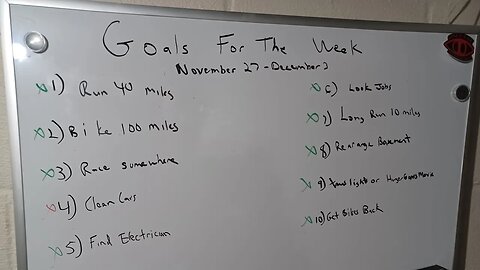 Goals For The Week
November 27-December 3
1) Run 40 miles
2) Bike 100 miles
3) Race somewhere
4) Clean Cars
5) Find Electrician
6) Look Jobs
7) Long Run 10 miles
8) Rearrange Basement
9) lights or Hunger Games Movie
10) Get Bikes Back